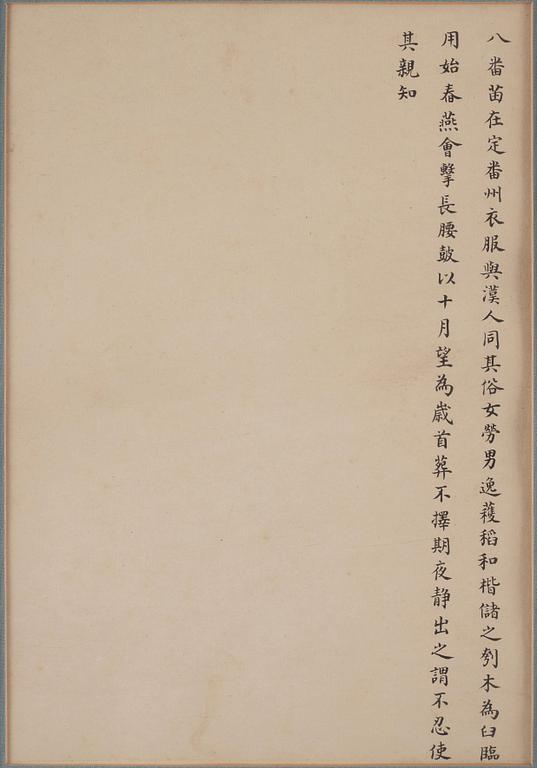 八番苗在定番州衣服與漢人同其俗女勞男逸穫稻和楷儲之刳木為臼臨
用始舂燕會擊長腰皷以十月望為歳首葬不擇期夜静出之謂不忍使
其親知